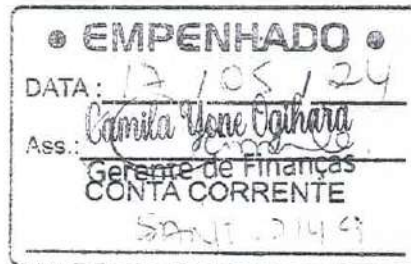 EMPENHADO
DATA: 17 / 05 / 24
Camila Yone Ogihara
Ass.:
Gerente de Finanças
CONTA CORRENTE